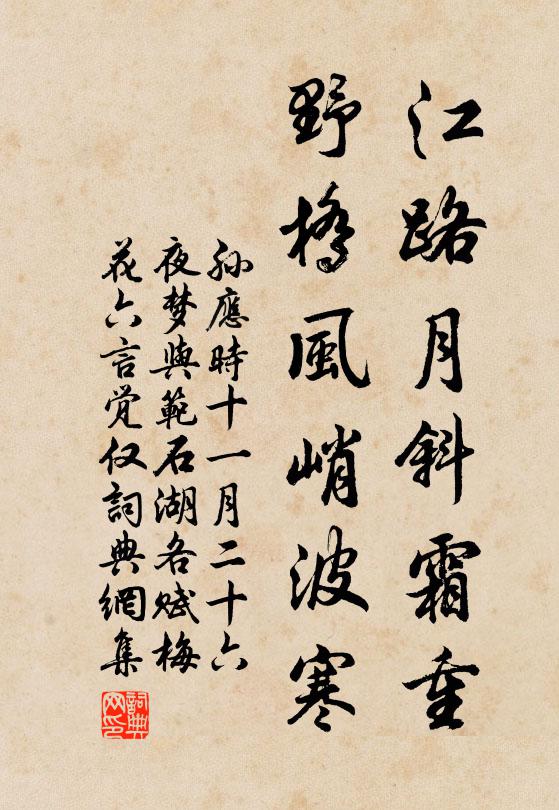 江路月斜霜重
野橋風峭波寒
孙應時十一月二十六
夜梦與範石湖各赋梅
花六言觉仅詞典網集
詞典网印